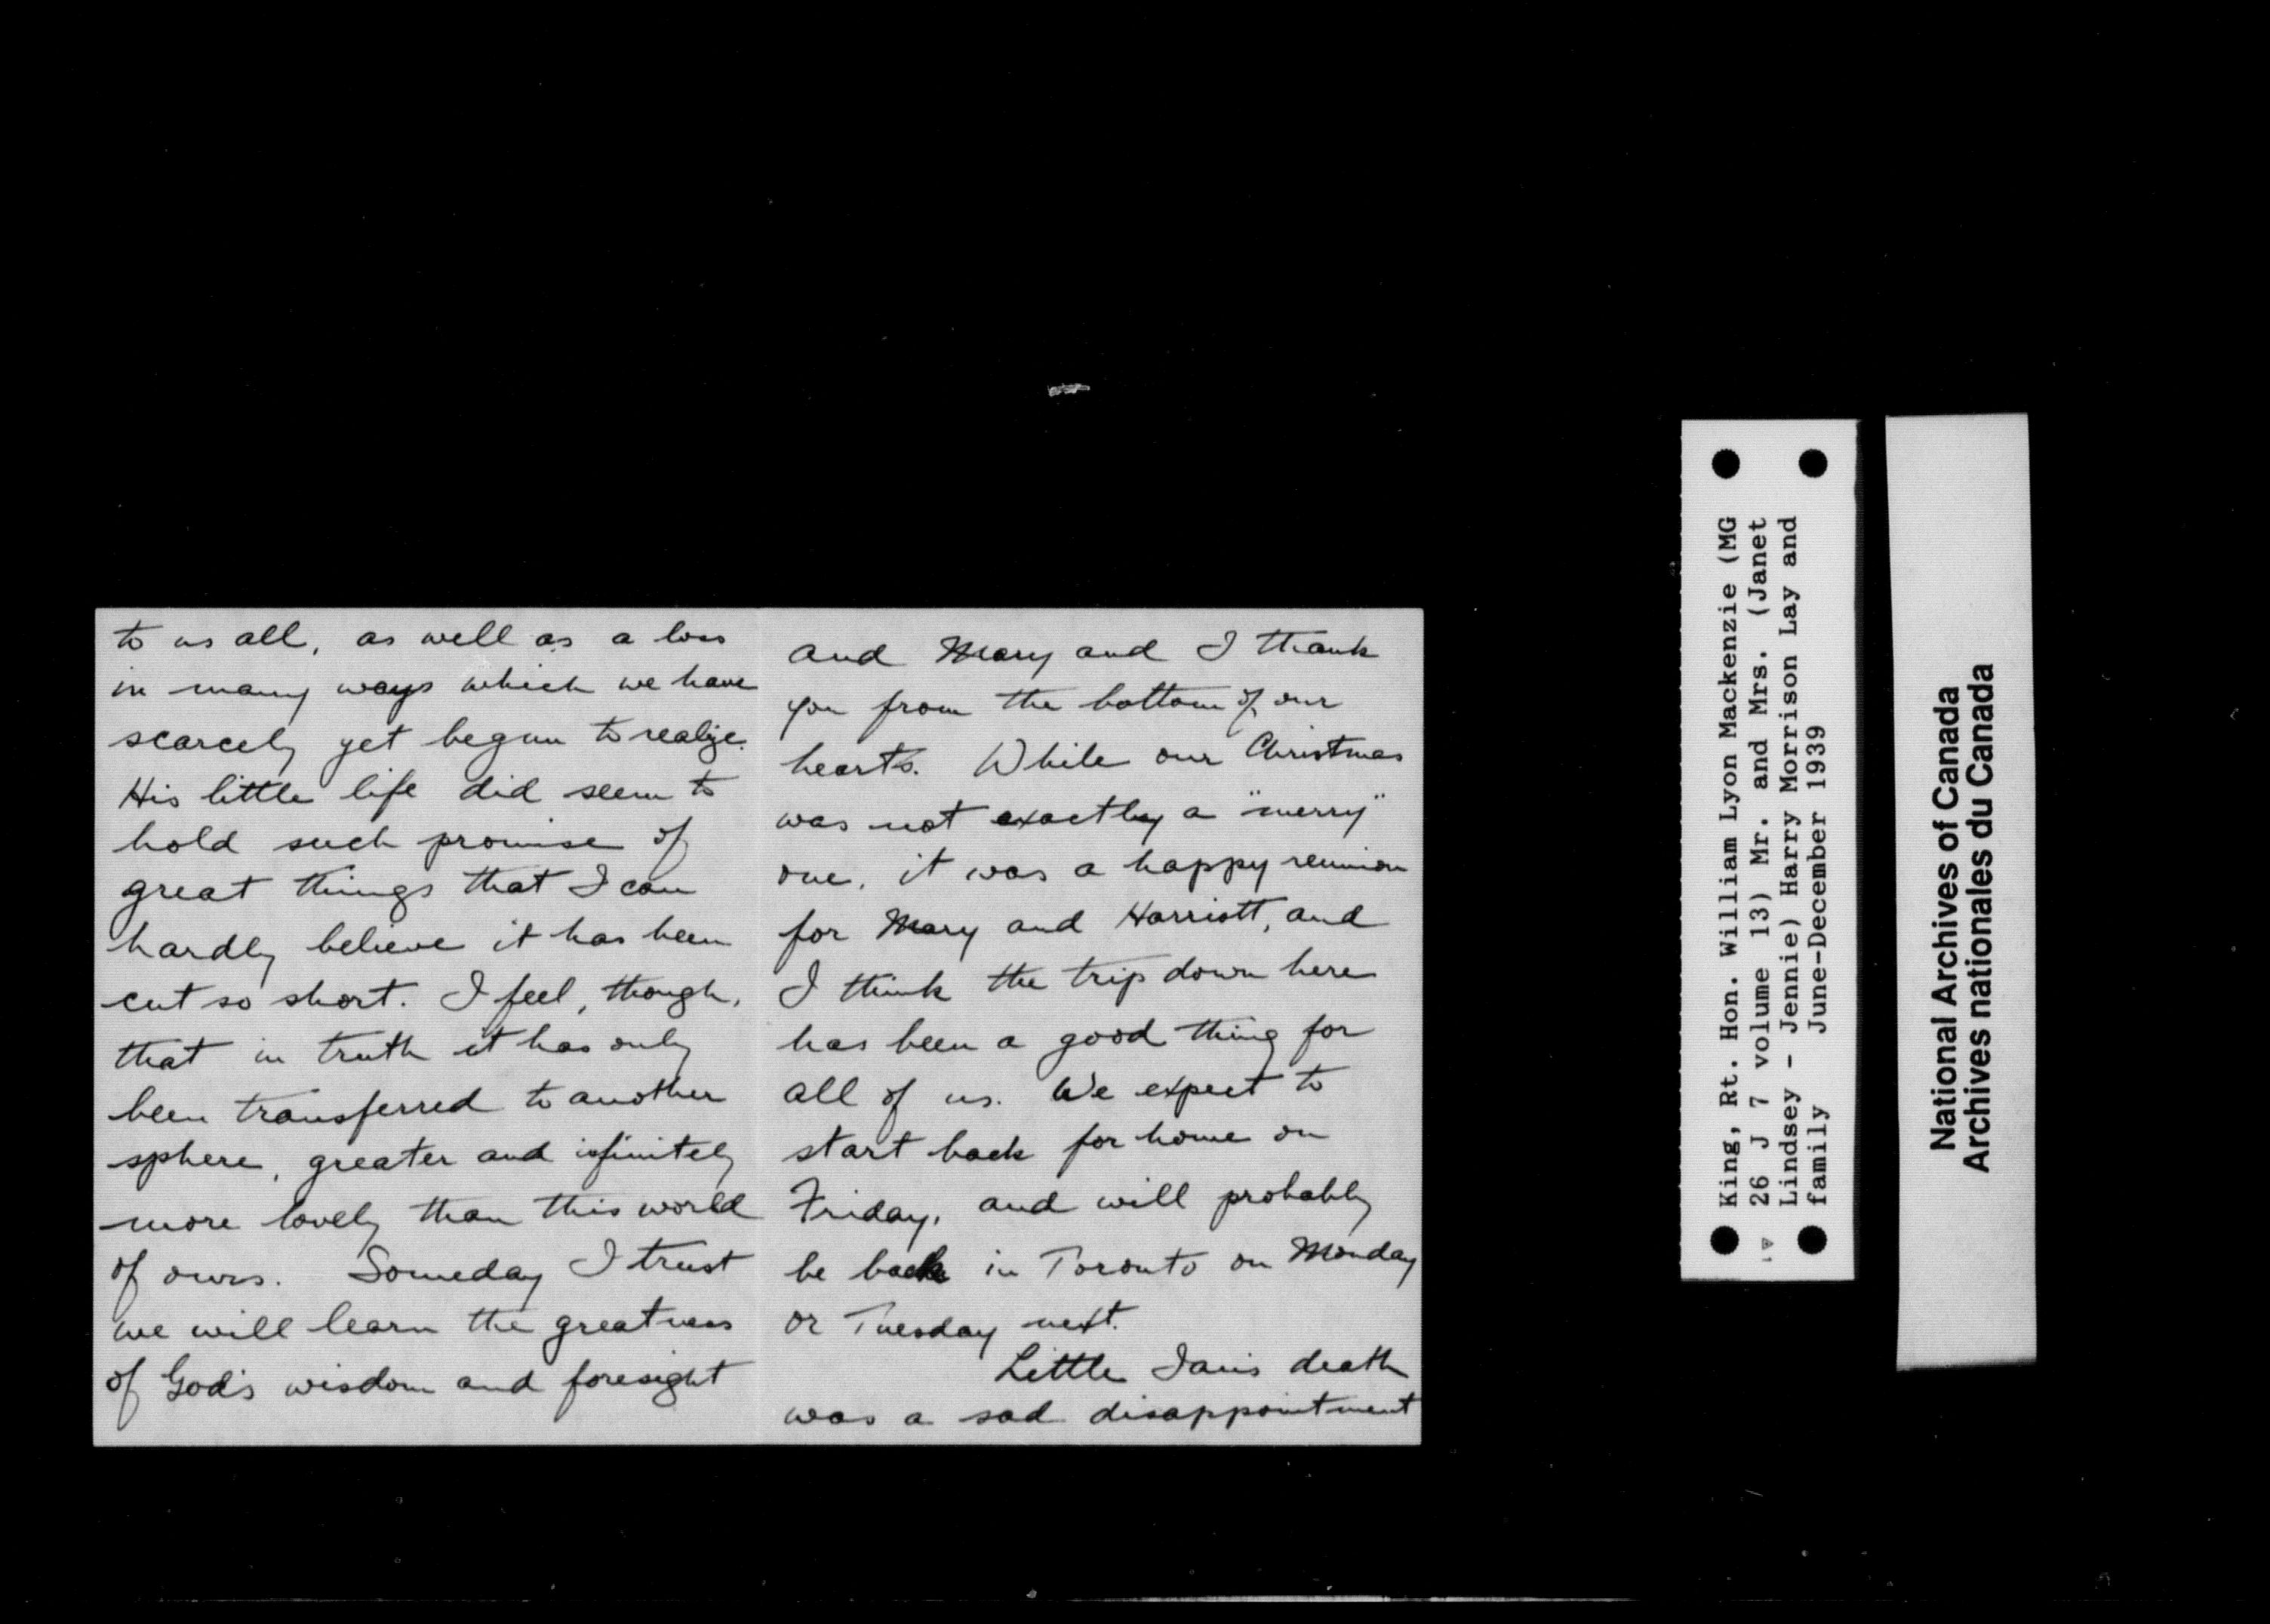 to us all, as well as a loss
in many ways which we have
scarcely yet begun to realize.
His little life did seem to
hold such promise of
great things that I can
hardly believe it has been
cut so short. I feel, though,
that in truth it has only
been transferred to another
sphere, greater and infinitely
more lovely than this world
of ours. Someday I trust
we will learn the greatness
of God's wisdom and foresight
and Mary and I thank
you from the bottom of our
hearts. While our Christmas
was not exactly a "merry"
one, it was a happy reunion
for Mary and Harriott, and
I think the trip down here
has been a good thing for
all of us. We expect to
start back for home on
Friday, and will probably
be back in Toronto on Monday
or Tuesday next.
Little Ian's death
was a sad disappointment
King, Rt. Hon. William Lyon Mackenzie (MG
26 J 7 volume 13) Mr. and Mrs. (Janet
Lindsey - Jennie) Harry Morrison Lay and
family June-December 1939
National Archives of Canada
Archives nationales du Canada